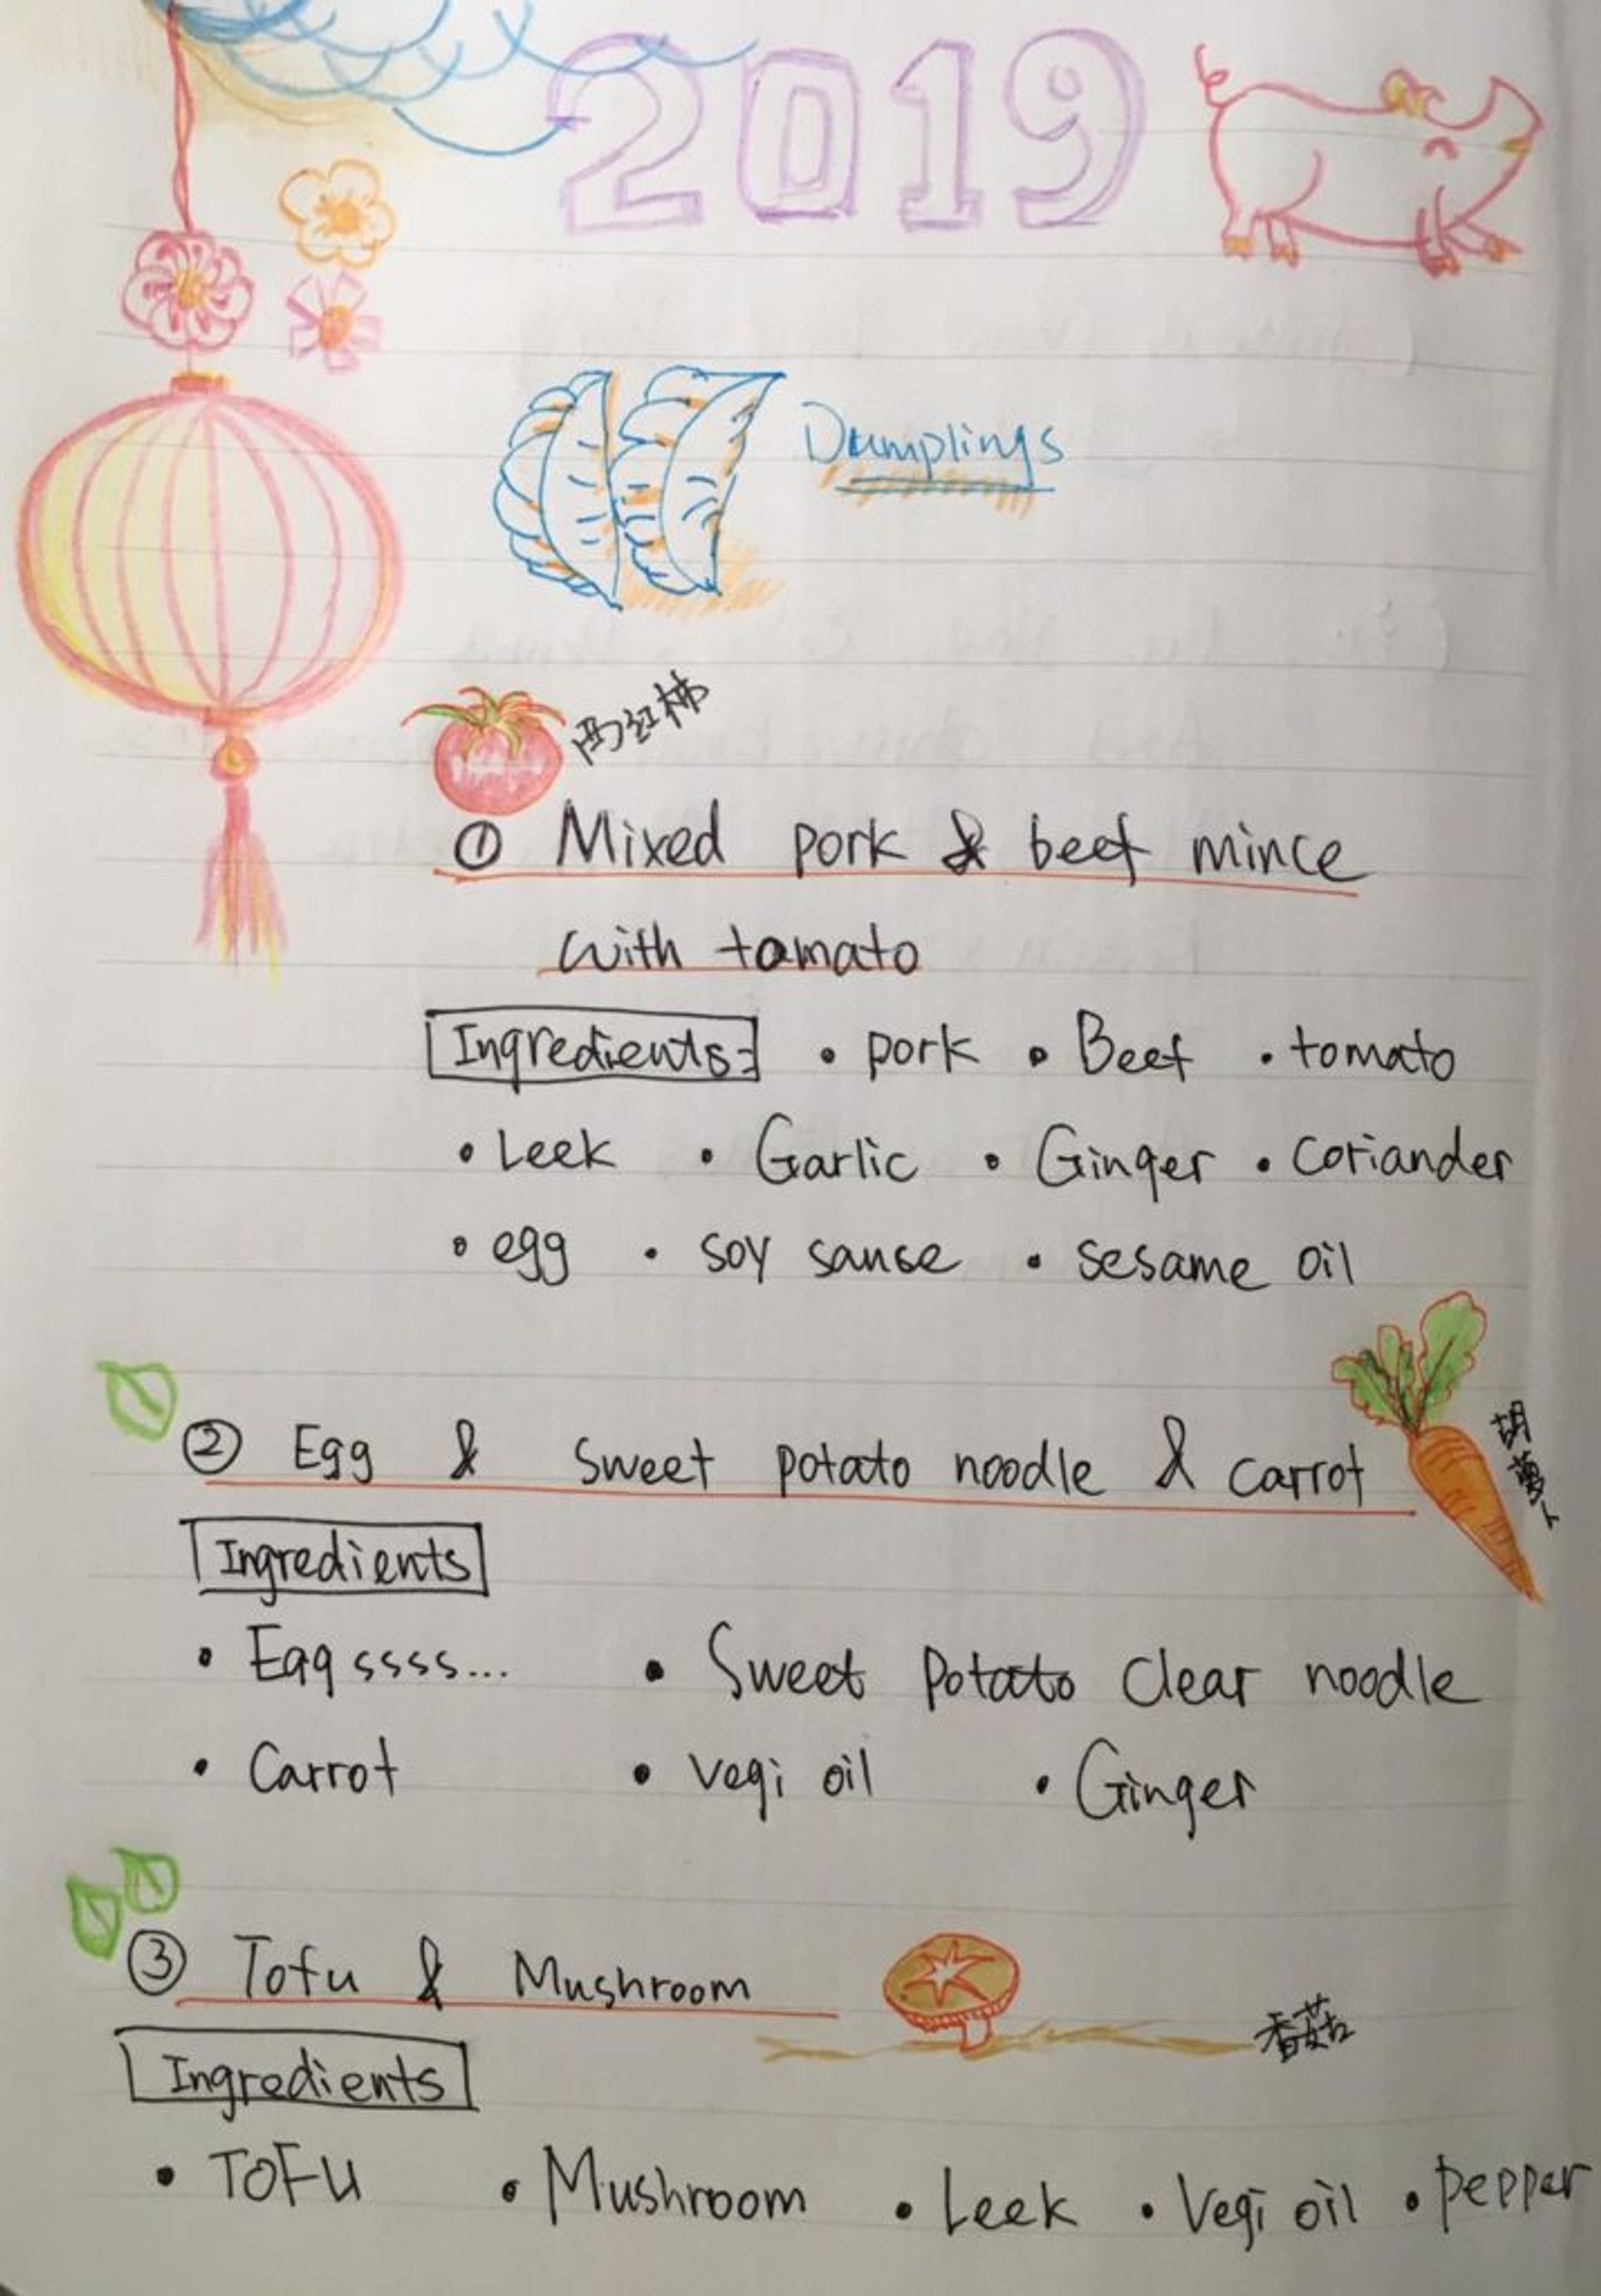 2019
Dumplings
西红柿
① Mixed pork & beef mince
with tomato
Ingredients: • pork • Beef • tomato
• Leek • Garlic • Ginger • coriander
• egg • soy sause • sesame oil
② Egg & Sweet potato noodle & carrot
胡萝卜
Ingredients
• Eggssss... • Sweet Potato Clear noodle
• Carrot • Vegi oil • Ginger
③ Tofu & Mushroom
香菇
Ingredients
• TOFU • Mushroom • Leek • Vegi oil • pepper